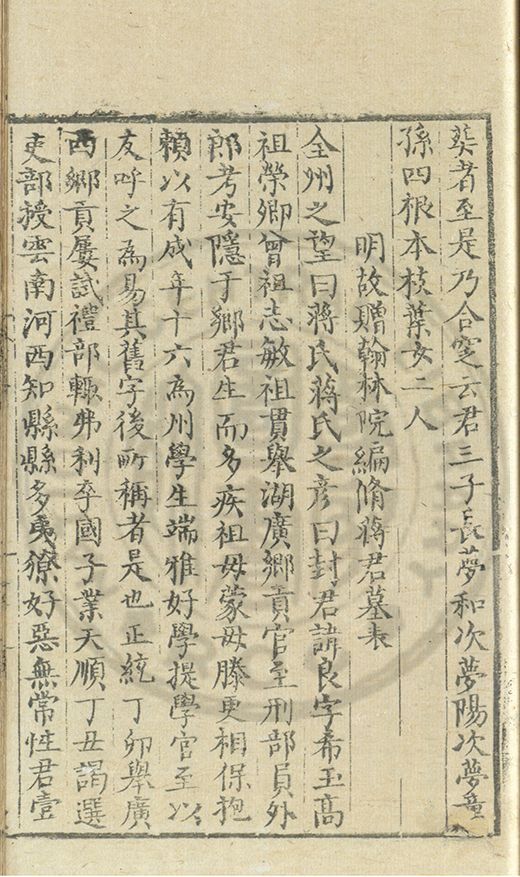 葬者至是乃合窆云君三子長夢和次夢陽次夢童
孫四根本枝葉女二人
明故贈翰林院編脩蔣君墓表
全州之望曰蔣氏蔣氏之彥曰封君諱良字希玉高
祖榮卿曾祖志敏祖貫舉湖廣鄉貢官至刑部員外
郎考安隱于鄉君生而多疾祖母蒙母滕更相保抱
賴以有成年十六為州學生端雅好學提學官至以
友呼之為易其舊字後所稱者是也正統丁卯舉廣
西鄉貢屢試禮部輙弗利卒國子業天順丁丑謁選
吏部授雲南河西知縣縣多夷獠好惡無常性君壹